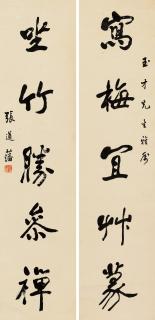 寫梅宜艸篆
玉才先生雅属
坐竹勝參禪
張道藩